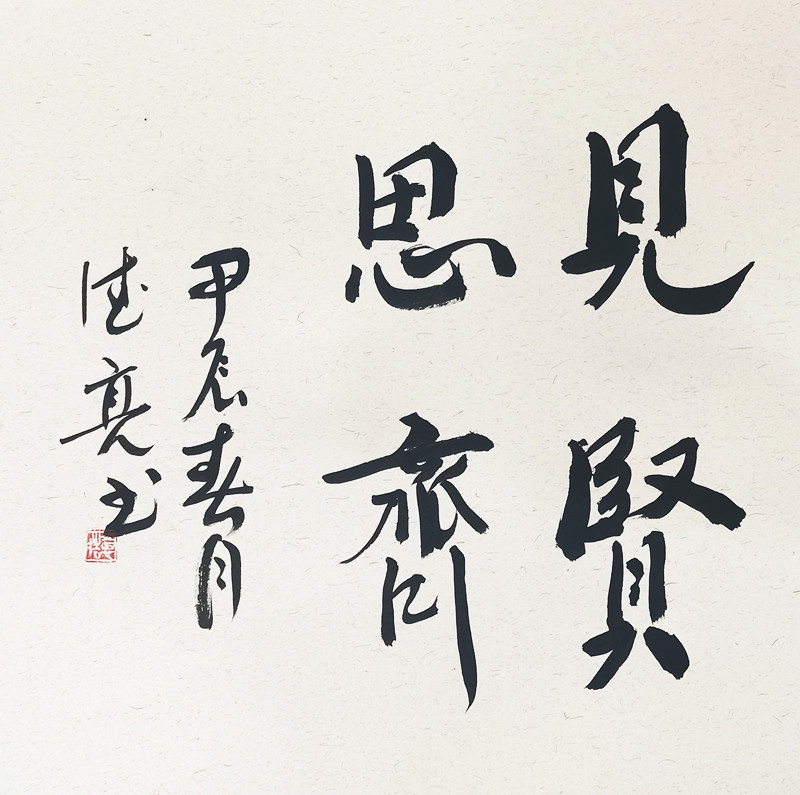 見賢
思齊
甲辰春月
德亮书